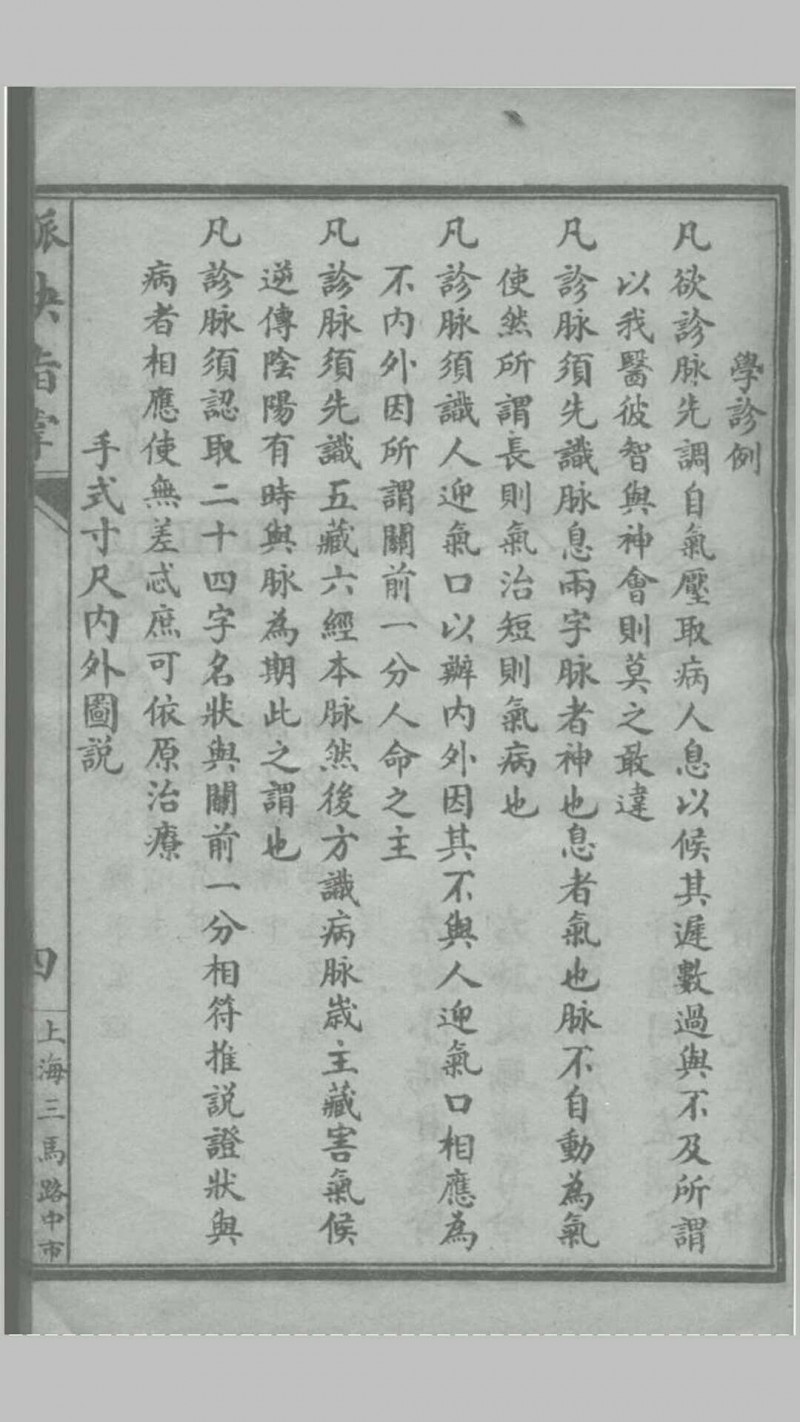 學診例
凡欲診脉先調自氣壓取病人息以候其遲數過與不及所謂
以我醫彼智與神會則莫之最違
凡診脉須先識脉息兩字脉者神也息者氣也脉不自動為氣
使然所謂長則氣治短則氣病也
凡診脉須識人迎氣口以辨內外因其不與人迎氣口相應為
不內外因所謂關前一分人命之主
凡診脉須先識五藏六經本脉然後方識病脉歲主藏害氣候
逆傳陰陽有時與脉為期此之謂也
凡診脉須認取二十四字名狀與關前一分相符推說證狀與
病者相應使無差忒庶可依原治療
手式寸尺內外圖説
脈訣指掌
四
上海三馬路中市